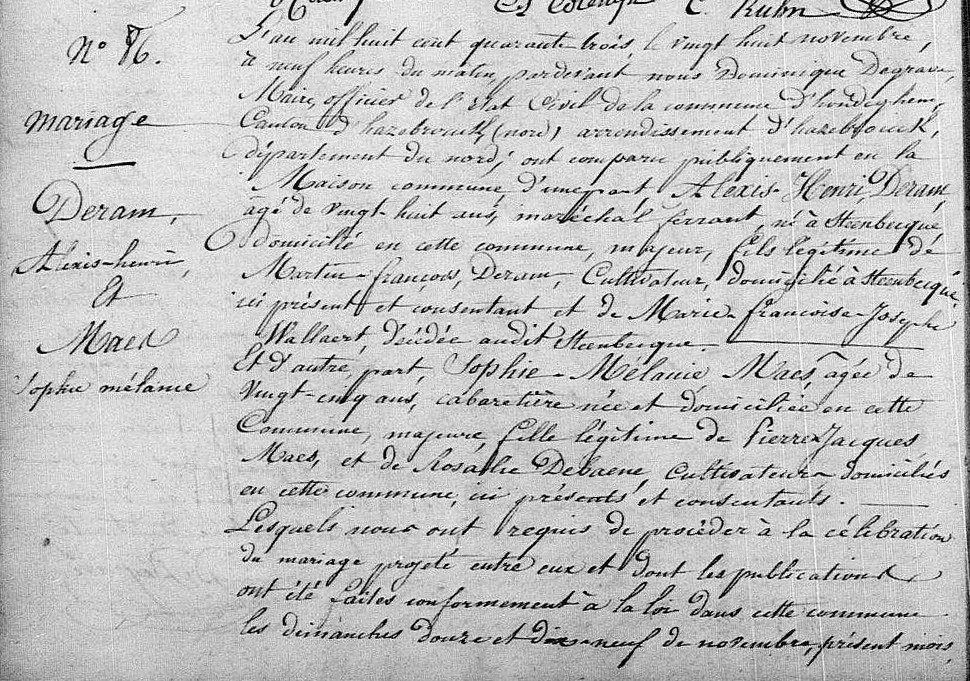 C. Kuhn
N° 16.
mariage
Deram,
Alexis-henri,
Et
Maes
Sophie mélanie
L'an mil huit cent quarante trois, le vingt huit novembre,
à neuf heures du matin, pardevant nous Dominique Degrave,
Maire, officier de l'état Civil de la commune d'hondeghem,
Canton d'hazebrouck, (nord) arrondissement d'hazebrouck,
département du nord, ont comparu publiquement en la
Maison commune d'une part, Alexis-Henri, Deram,
âgé de vingt-huit ans, maréchal ferrant, né à Steenbecque,
Domicilié en cette commune, majeur, fils légitime de
Martin-françois, Deram, Cultivateur, domicilié à Steenbecque,
ici présent et consentant et de Marie-françoise-Josephe
Wallaert, décédée audit Steenbecque.
Et d'autre part, Sophie-Mélanie Maes, agée de
vingt-cinq ans, cabaretière née et domiciliée en cette
Commune, majeure, fille légitime de Pierre Jacques
Maes, et de Rosalie Debaene, Cultivateurs domiciliés
en cette commune, ici présents et consentants.
Lesquels nous ont requis de procéder à la célébration
du mariage projeté entre eux et dont les publications
ont été faites conformement à la loi dans cette commune
les dimanches douze et dix-neuf de novembre, présent mois,